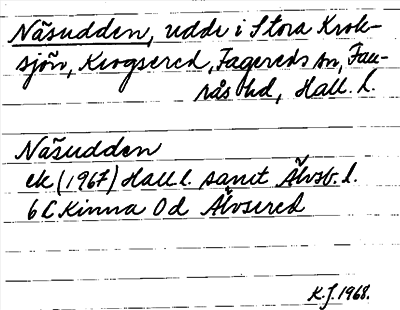 Näsudden, udde i Stora Krok-
sjön, Krogsered, Fagereds sn, Fau-
rås hd, Hall. l.
Näsudden
ek (1967) Hall l. samt Älvsb. l.
6C Kinna 0d Älvsered
K.J. 1968.